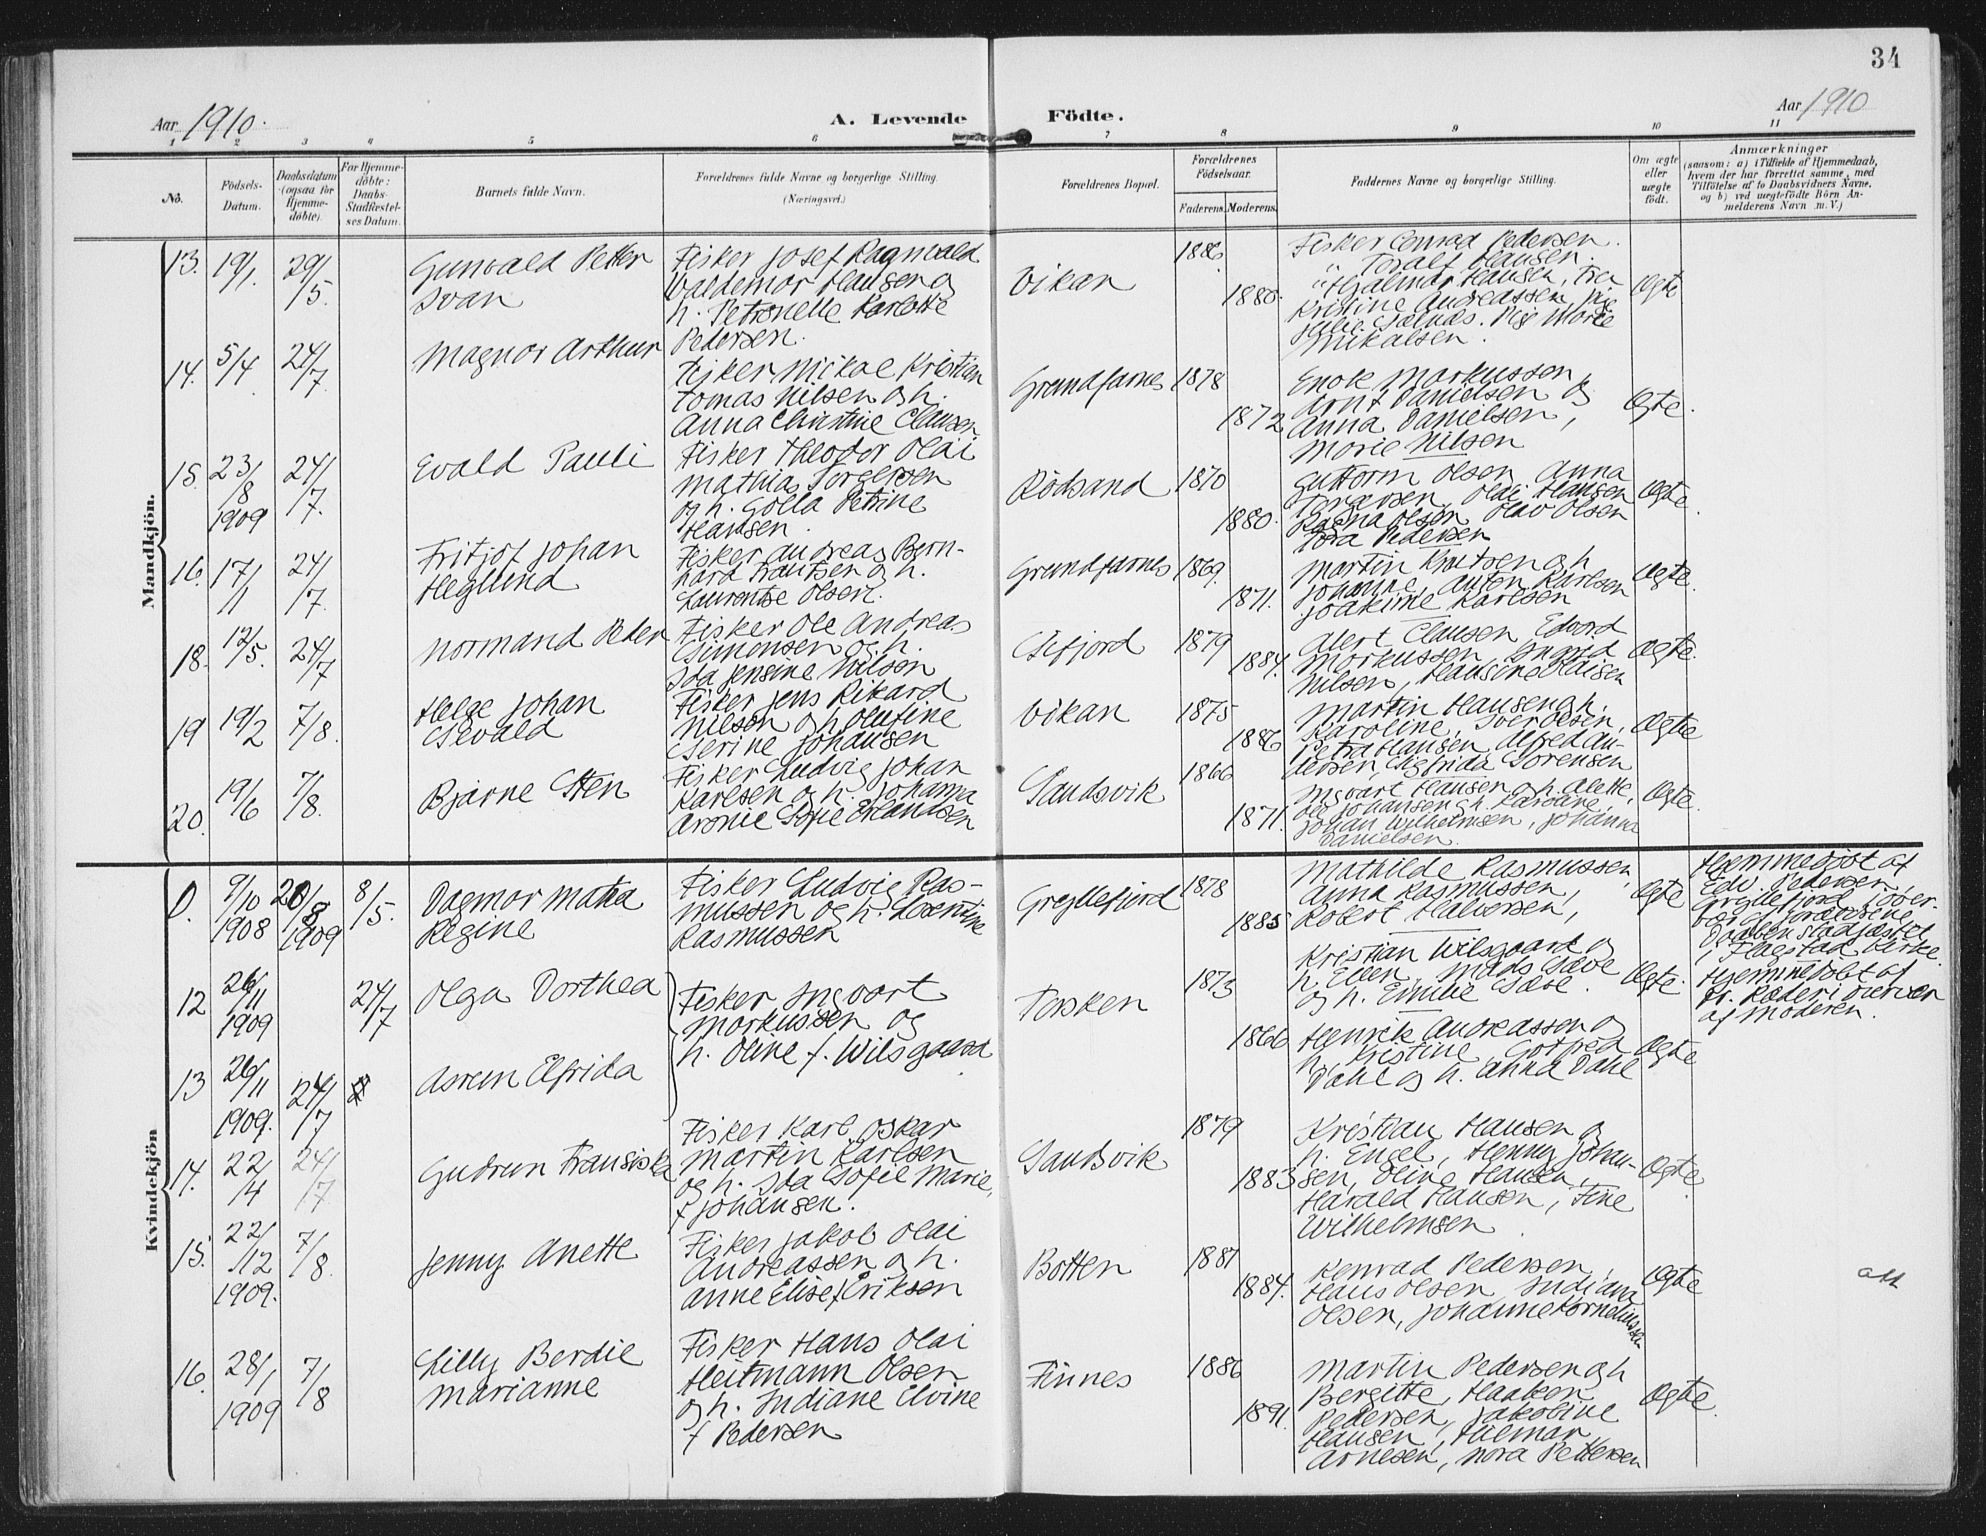 34
Aar 1910.
A. Levende Födte.
Aar 1910
1 2 3 4 5 6 7 8 9 10 11
No.
Födsels-Datum.
Daabsdatum (ogsaa for Hjemme-döbte).
For Hjemme-döbte: Daabs-Stadfæstel-ses Datum.
Barnets fulde Navn.
Forældrenes fulde Navne og borgerlige Stilling.
(Næringsvei.)
Forældrenes Bopæl.
Forældrenes Födselsaar.
Faderens. Moderens.
Faddernes Navne og borgerlige Stilling.
Om ægte eller uægte födt.
Anmærkninger
(saasom: a) i Tilfælde af Hjemmedaab,
hvem der har forrettet samme, med
Tilföielse af to Daabsvidners Navne,
og b) ved uægtefödte Börn An-
melderens Navn m. V.)
Mandkjön.
13. 19/1. 29/5. Gunvald Petter
Ivan
Fisker Josef Ragnvald
Valdemor Hansen og
h. Petronelle Karlotte
Pedersen.
Vikan
1886
1880.
Fisker Conrad Pedersen.
" Toralf Hansen.
" Hjalmar Hansen, Fru
Kristine Andreassen, Pige
Julie . Pige Marie
Mikalsen.
Ægte
14. 5/4 24/7. Magnor Arthur
Fisker Mikal Kristian
Tomas Nilsen og h.
Anna Christine Clausen
Grundfarnes
1878
1872
Enok Markussen
Arnt Danielsen og
Anna Danielsen,
Marie Nilsen
Ægte.
15. 23/8 1909 24/7. Evald Pauli
Fisker Theodor Olai
Mathias Torgersen
og h. Golla Petrine
Hansen.
Rödsand
1870
1880.
Guttorm Olsen, Anna
Torgersen, Olai Hansen
Ragna Olsen Olav Olsen
Tora Pedersen
Ægte.
16. 17/11 24/7. Fritjof Johan
Heglund
Fisker Andreas Bern-
hard Frantsen og h.
Laurentse Olsen.
Grundfarnes
1869.
1871.
Martin Knutsen og h
Johanne, Anton Karlsen
Joakime Karlsen
Ægte.
18. 12/5. 24/7 Normand Peder
Fisker Ole Andreas
Simonsen og h.
Ida Jensine Nilsen
Gifjord
1879
1884.
Alert Clausen, Edvard
Morkussen Ingrid
Nilsen, Hansine Hansen
Ægte.
19 19/2 7/8. Helge Johan
Sevald
Fisker Jens Rikard
Nilsen og h. Olufine
Serine Johansen
Vikan
1875
1886
Martin Hansen og h.
Karoline, Iver Olsen,
Petra Hansen, Alfred An-
dersen, Sigfrida Sorensen
Ægte
20. 19/6 7/8. Bjarne Sten
Fisker Ludvig Johan
Karlsen og h. Johanna
Aronie Sofie Erlandsen
Sandsvik
1866
1871.
Ingvart Hansen og h. Alette,
Ole Johansen og h. Karoline,
Johan Wilhelmsen, Johanna
Danielsen.
Ægte.
Kvindekjön
0. 9/10 1908 20/8 1909 8/5. Dagmor Matha
Regine
Fisker Ludvig Ras-
mussen og h. Lorentine
Rasmussen
Gryllefjord
1878
1885
Mathilde Rasmussen,
Anna Rasmussen,
Robert Halvorsen,
Ægte
Hjemmedöbt af
Edv. Pedersen,
Gryllefjord i over-
vær af forældrene
Daaben stadfæstet
i Flagstad kirke.
12 26/11 1909 24/7 Olga Dorthea
Fisker Ingvart
Morkussen og
h. Oline f. Wilsgaard
Torsken
1873
1866
Kristian Wilsgaard og
h. Ellen, Mads Sæve
og h. Emilie Sæve.
Ægte.
Hjemmedöbt af
Fr. Ræder i overvær
af moderen.
13 26/11 1909. 24/7 Asrun Elfrida
Henrik Andreassen og
h. Kristine, Gotfred
Dahl og h. Anna Dahl
Ægte
14. 22/4 24/7 Gudrun Fransiska
Fisker Karl Oskar
Martin Karlsen
og h. Ida Sofie Marie,
f Johansen.
Sandsvik
1879
1883
Kristian Hansen og
h. Engel, Henny Johan-
sen, Oline Hansen,
Harald Hansen, Fine
Wilhelmsen.
Ægte
15. 22/12 1909. 7/8. Jenny Anette
Fisker Jakob Olai
Andreassen og h.
Anne Elise f Eriksen
Botten
1881
1884.
Konrad Pedersen,
Hans Olsen, Indiana
Olsen, Johanne Korneliussen
Ægte
att
16. 28/1 1909 7/8 Lilly Berdie
Marianne
Fisker Hans Olai
Heitmann Olsen
og h. Indiane Elvine
f Pedersen
Finnes
1886
1891.
Martin Pedersen og h
Bergitte, Haakon
Pedersen, Jakobine
Hansen, Hilmar
Arnesen, Nora Pettersen
Ægte.